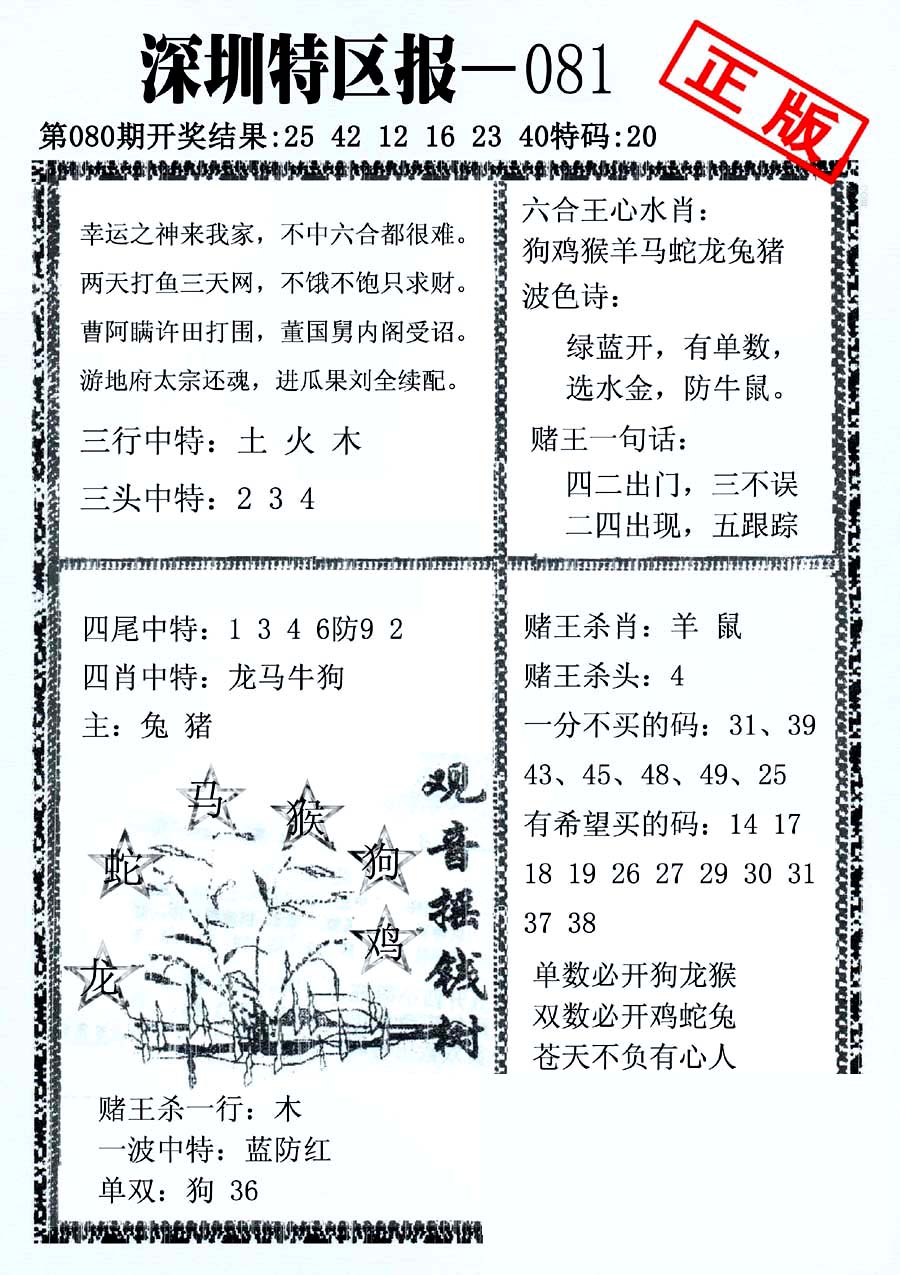 深圳特区报—081
正版
第080期开奖结果:25 42 12 16 23 40特码:20
幸运之神来我家，不中六合都很难。
两天打鱼三天网，不饿不饱只求财。
曹阿瞒许田打围，董国舅内阁受诏。
游地府太宗还魂，进瓜果刘全续配。
三行中特：土 火 木
三头中特：2 3 4
六合王心水肖：
狗鸡猴羊马蛇龙兔猪
波色诗：
绿蓝开，有单数，
选水金，防牛鼠。
赌王一句话：
四二出门，三不误
二四出现，五跟踪
四尾中特：1 3 4 6防9 2
四肖中特：龙马牛狗
主：兔 猪
马
猴
蛇
狗
鸡
龙
观音摇钱树
赌王杀一行：木
一波中特：蓝防红
单双：狗 36
赌王杀肖：羊 鼠
赌王杀头：4
一分不买的码：31、39
43、45、48、49、25
有希望买的码：14 17
18 19 26 27 29 30 31
37 38
单数必开狗龙猴
双数必开鸡蛇兔
苍天不负有心人